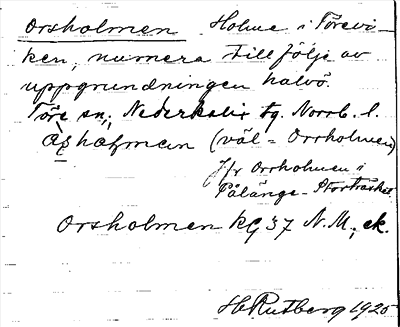 Orsholmen Holme i Törevi-
ken, numera till följe av
uppgrundningen halvö.
Töre sn, Nederkalix tg. Norrb. l.
(väl = Orrholmen)
Jfr Orrholmen i
Pålänge-Storträsket.
Orsholmen kg 37 N.M., ek.
HRutberg 1925